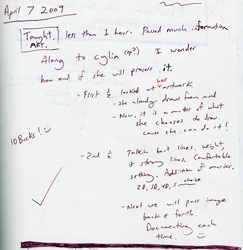 April 7 2009
Taught. less than 1 hour. Passed much information
ART.
Along to Cylia (sp?) I wonder
how and if she will process it.
- First ½ looked at her artwork
- She already draws from mind
- Now, it is a matter of what
she chooses to draw.
cause she can do it!
10 Bucks!
- 2nd ½ Talk in but lines, weight,
+ strong lines. Comfortable
setting. Addition of
2D, 3D, 4D, 5 choice.
- Next we will pass image
back + forth.
Documenting each
time.